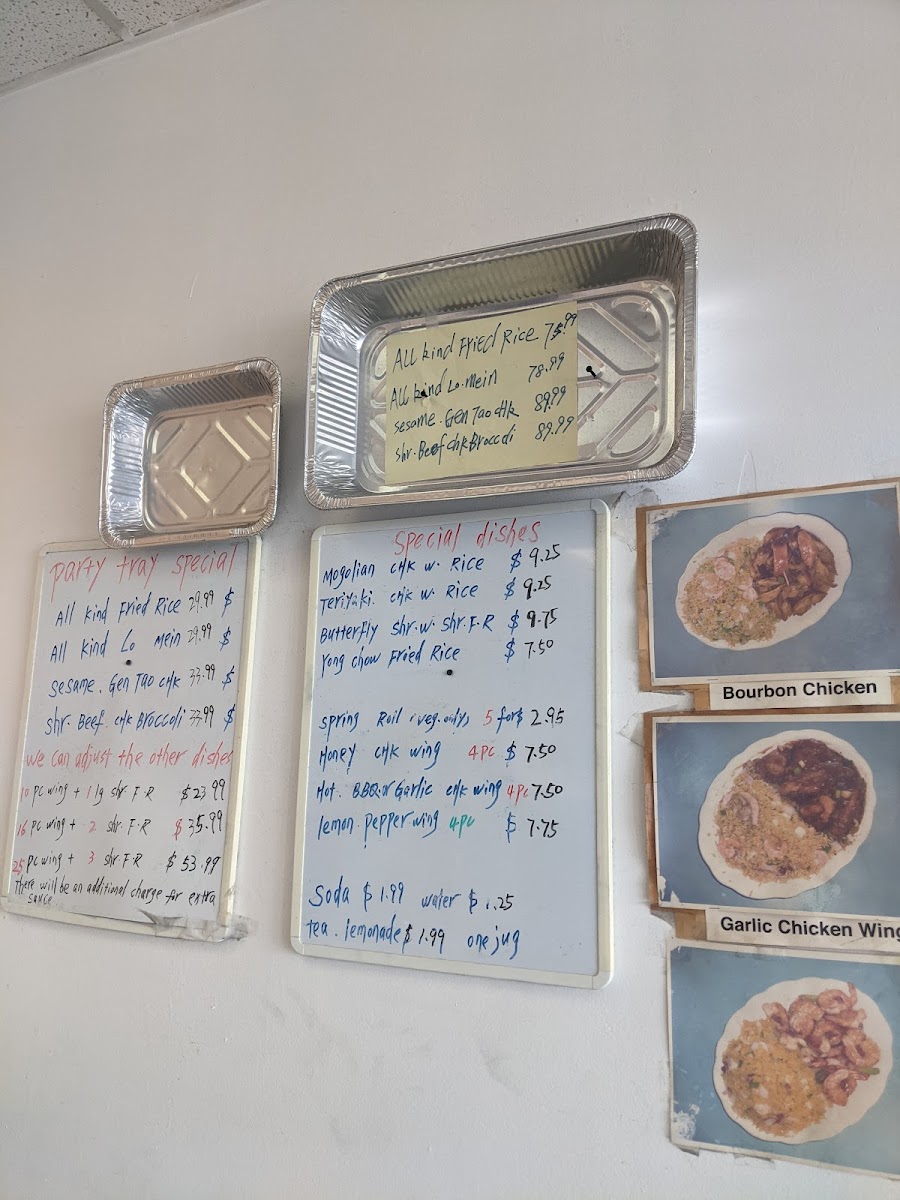 All kind Fried Rice 75.99
All kind Lo.mein 78.99
sesame. Gen Tao chk 89.99
shr. Beef chk Broccoli 89.99
party tray special
All kind Fried Rice 29.99 $
All kind Lo mein 29.99 $
sesame. Gen Tao chk 33.99 $
shr. Beef. chk Broccoli 33.99 $
we can adjust the other dishes
10 pc wing + 1 lg shr F.R $23.99
16 pc wing + 2 shr. F.R $35.99
25 pc wing + 3 shr. F.R $53.99
There will be an additional charge for extra
sauce
special dishes
Mogolian chk w. Rice $9.25
Teriyaki. chk w. Rice $9.25
Butterfly shr. w. shr. F.R $9.75
Yong chow Fried Rice $7.50
spring Roll (veg.only) 5 for $2.95
Honey chk wing 4pc $7.50
Hot. BBQ or Garlic chk wing 4pc 7.50
lemon pepper wing 4pc $7.75
Soda $1.99 water $1.25
tea. lemonade $1.99 one jug
Bourbon Chicken
Garlic Chicken Wing